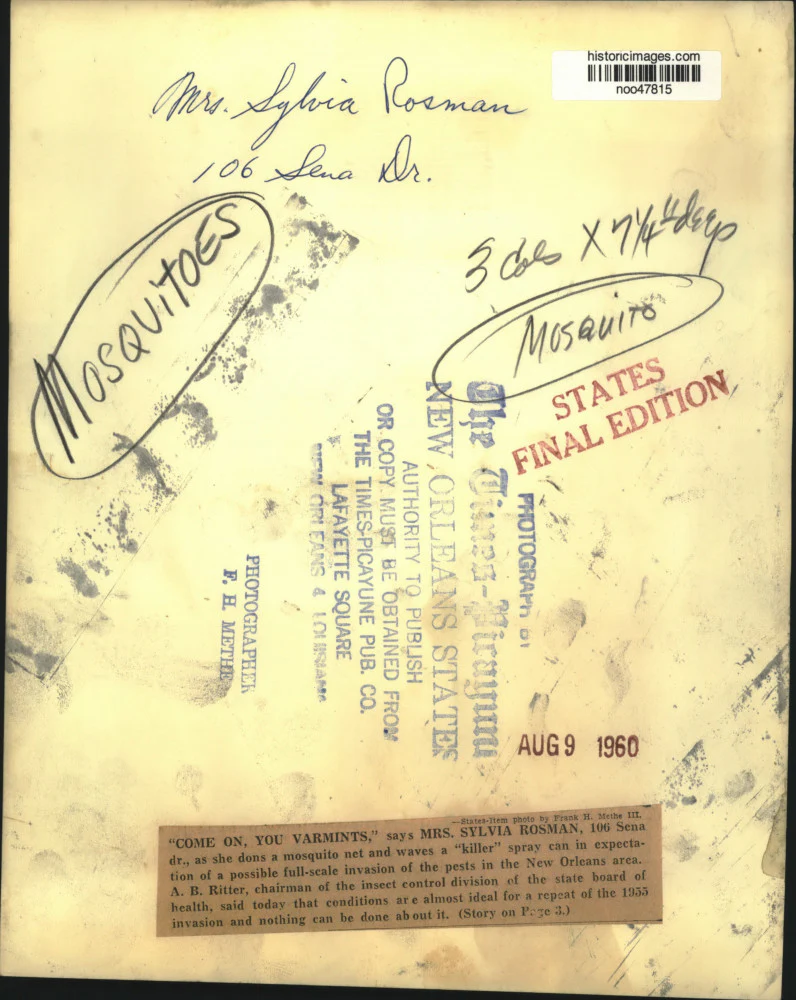 historicimages.com
noo47815
Mrs. Sylvia Rosman
106 Sena Dr.
MOSQUITOES
3 Cols X 7 1/4" deep
MOSQUITO
STATES
FINAL EDITION
PHOTOGRAPH BY
The Times-Picayune
NEW ORLEANS STATES
AUTHORITY TO PUBLISH
OR COPY MUST BE OBTAINED FROM
THE TIMES-PICAYUNE PUB. CO.
LAFAYETTE SQUARE
NEW ORLEANS 4 LOUISIANA
PHOTOGRAPHER
F. H. METHE
AUG 9 1960
—States-Item photo by Frank H. Methe III.
"COME ON, YOU VARMINTS," says MRS. SYLVIA ROSMAN, 106 Sena
dr., as she dons a mosquito net and waves a "killer" spray can in expecta-
tion of a possible full-scale invasion of the pests in the New Orleans area.
A. B. Ritter, chairman of the insect control division of the state board of
health, said today that conditions are almost ideal for a repeat of the 1955
invasion and nothing can be done about it. (Story on Page 3.)